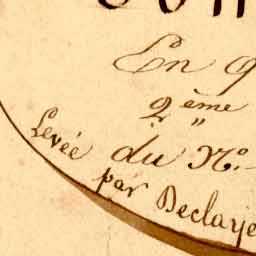 En q
2ème
Levée du No.
par Declaye